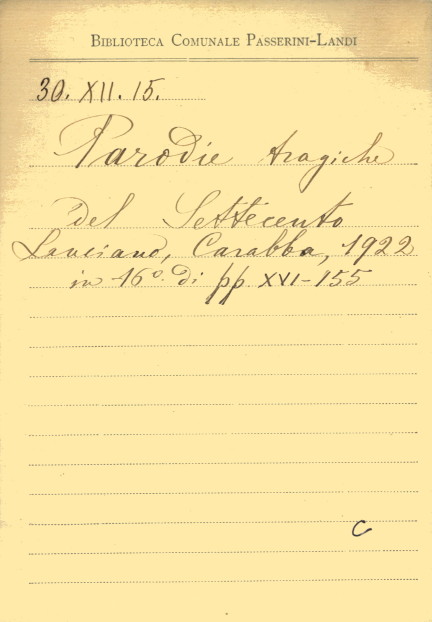 BIBLIOTECA COMUNALE PASSERINI-LANDI
30. XII. 15.
Parodie tragiche
del Settecento
Lanciano, Carabba, 1922
in 16º. di pp. XVI-155
C